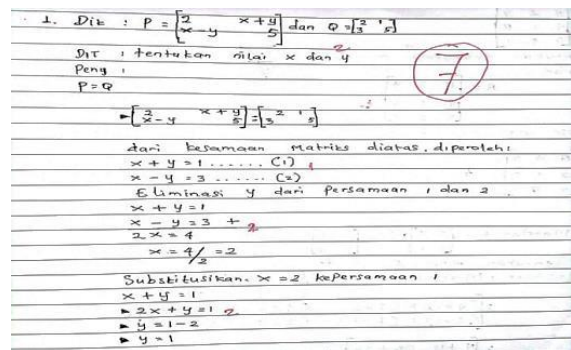 1. Dik : P = [2 x+y x-y 5] dan Q = [2 1 3 5]
DIT : tentukan nilai x dan y 2
Peny :
P = Q
7
▸ [2 x+y x-y 5] = [2 1 3 5]
dari kesamaan Matriks diatas, diperoleh:
x + y = 1 ...... (1) 1
x - y = 3 ...... (2)
Eliminasi y dari Persamaan 1 dan 2
x + y = 1
x - y = 3 + 2
2x = 4
x = 4/2 = 2
Substitusikan x = 2 kePersamaan 1
x + y = 1
▸ 2x + y = 1 2
▸ y = 1 - 2
▸ y = 1